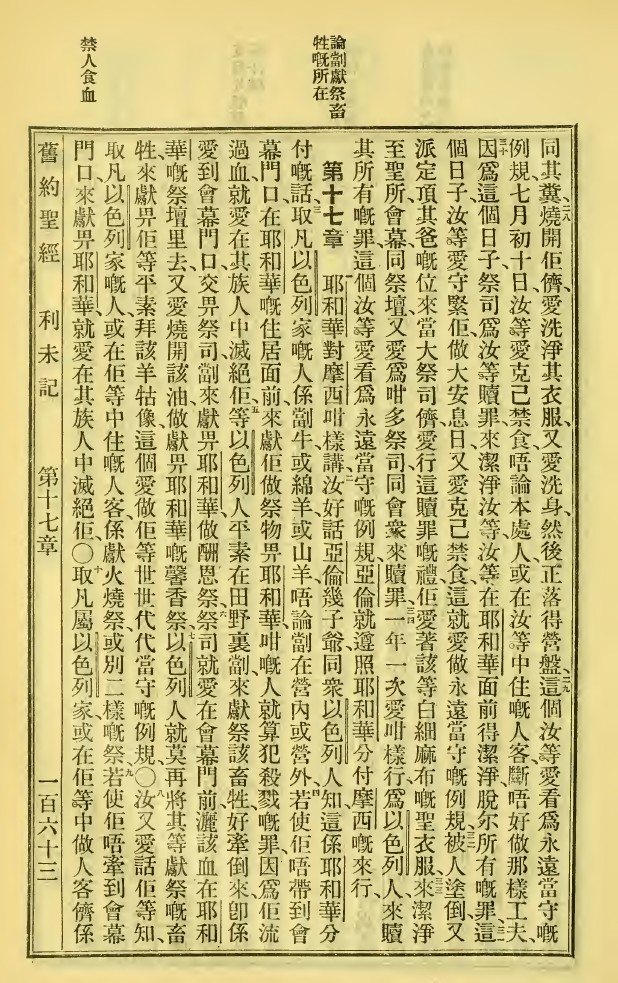 論劏獻祭畜
牲嘅所在
禁人食血
同其糞燒開佢儕愛洗淨其衣服又愛洗身然後正落得營盤二八這個汝等愛看爲永遠當守嘅二九
例規七月初十日汝等愛克己禁食唔論本處人或在汝等中住嘅人客斷唔好做那樣工夫
三十因爲這個日子祭司爲汝等贖罪來潔淨汝等汝等在耶和華面前得潔淨脫尔所有嘅罪三一這
個日子汝等愛守緊佢做大安息日又愛克己禁食這就愛做永遠當守嘅例規三二被人塗倒又
派定頂其爸嘅位來當大祭司儕愛行這贖罪嘅禮佢愛著該等白細麻布嘅聖衣服三三來潔淨
至聖所會幕同祭壇又愛爲咁多祭司同會衆來贖罪三四一年一次愛咁樣行爲以色列人來贖
其所有嘅罪這個汝等愛看爲永遠當守嘅例規亞倫就遵照耶和華分付摩西嘅來行
第十七章 耶和華對摩西咁樣講二汝好話亞倫幾子爺同衆以色列人知這係耶和華分
付嘅話三取凡以色列家嘅人係劏牛或綿羊或山羊唔論劏在營內或營外四若使佢唔帶到會
幕門口在耶和華嘅住居面前來獻佢做祭物畀耶和華咁嘅人就算犯殺戮嘅罪因爲佢流
過血就愛在其族人中滅絕佢五等以色列人平素在田野裏劏來獻祭該畜牲好牽倒來卽係
愛到會幕門口交畀祭司劏來獻畀耶和華做酬恩祭六祭司就愛在會幕門前灑該血在耶和
華嘅祭壇里去又愛燒開該油做獻畀耶和華嘅馨香祭七以色列人就莫再將其等獻祭嘅畜
牲來獻畀佢等平素拜該羊牯像這個愛做佢等世世代代當守嘅例規〇八汝又愛話佢等知
取凡以色列家嘅人或在佢等中住嘅人客係獻火燒祭或別二樣嘅祭九若使佢唔牽到會幕
門口來獻畀耶和華就愛在其族人中滅絕佢〇十取凡屬以色列家或在佢等中做人客儕係
舊約聖經 利未記 第十七章 一百六十三